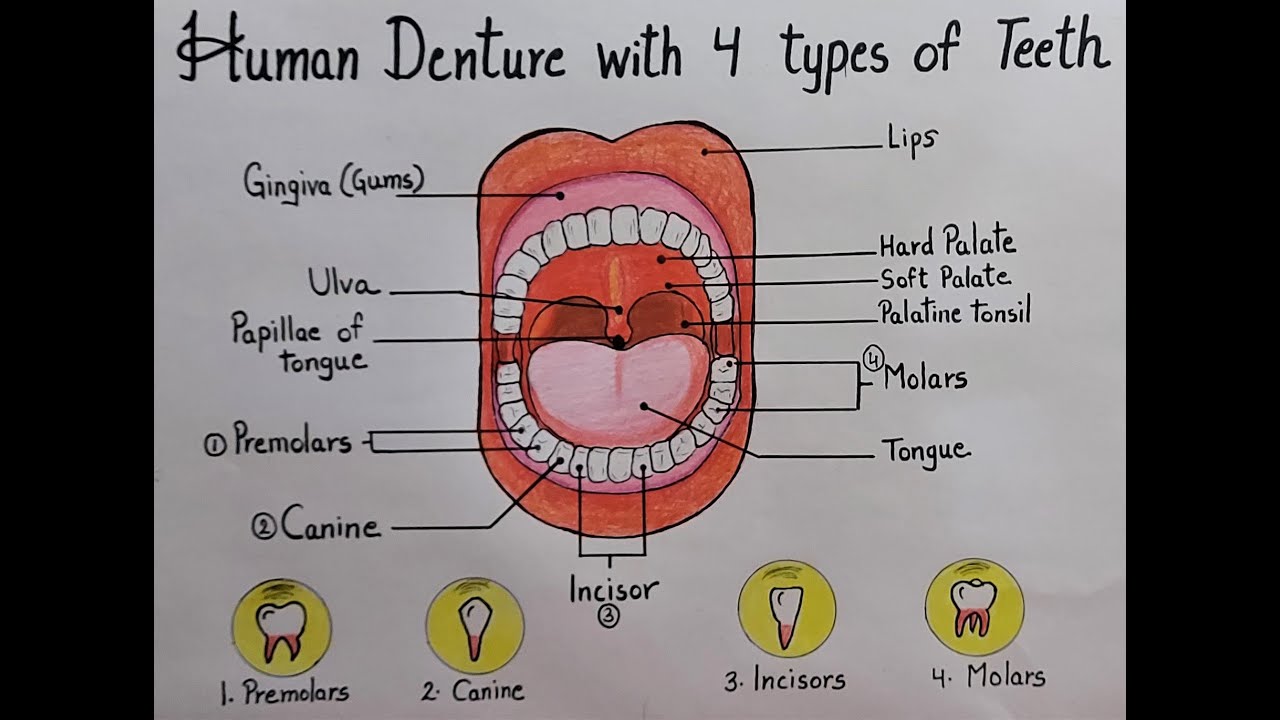 Human Denture with 4 types of Teeth
Lips
Gingiva (Gums)
Hard Palate
Soft Palate
Ulva
Palatine tonsil
Papillae of
tongue
④ Molars
① Premolars
Tongue
② Canine
Incisor
③
1. Premolars
2. Canine
3. Incisors
4. Molars